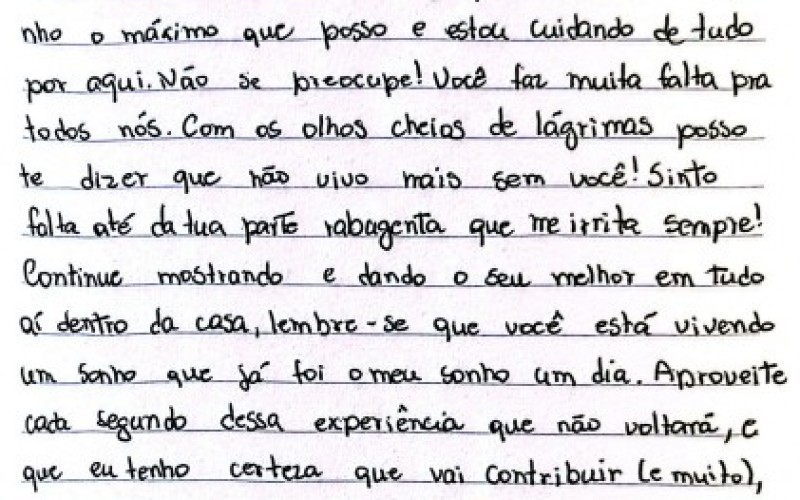 nho o máximo que posso e estou cuidando de tudo
por aqui. Não se preocupe! Você faz muita falta pra
todos nós. Com os olhos cheios de lágrimas posso
te dizer que não vivo mais sem você! Sinto
falta até da tua parte rabagenta que me irrita sempre!
Continue mostrando e dando o seu melhor em tudo
aí dentro da casa, lembre-se que você está vivendo
um sonho que já foi o meu sonho um dia. Aproveite
cada segundo dessa experiência que não voltará, e
que eu tenho certeza que vai contribuir (e muito),